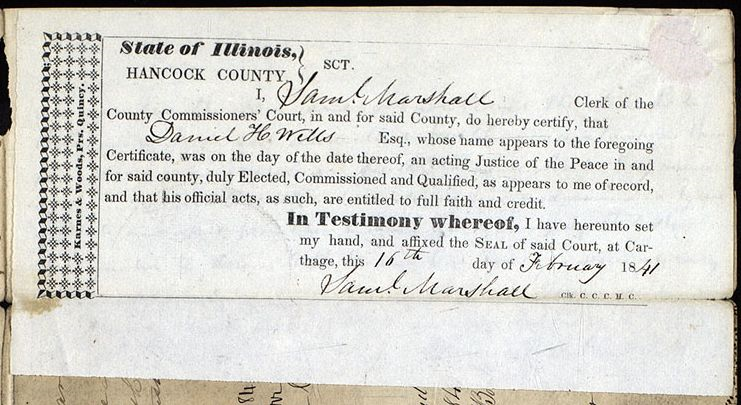 State of Illinois,
HANCOCK COUNTY
SCT.
I, Saml. Marshall Clerk of the
County Commissioners' Court, in and for said County, do hereby certify, that
Daniel H Wells Esq., whose name appears to the foregoing
Certificate, was on the day of the date thereof, an acting Justice of the Peace in and
for said county, duly Elected, Commissioned and Qualified, as appears to me of record,
and that his official acts, as such, are entitled to full faith and credit.
In Testimony whereof, I have hereunto set
my hand, and affixed the SEAL of said Court, at Car-
thage, this 16th day of February 1841
Saml. Marshall Clk. C. C. C. H. C.
Karnes & Woods, Prs. Quincy.